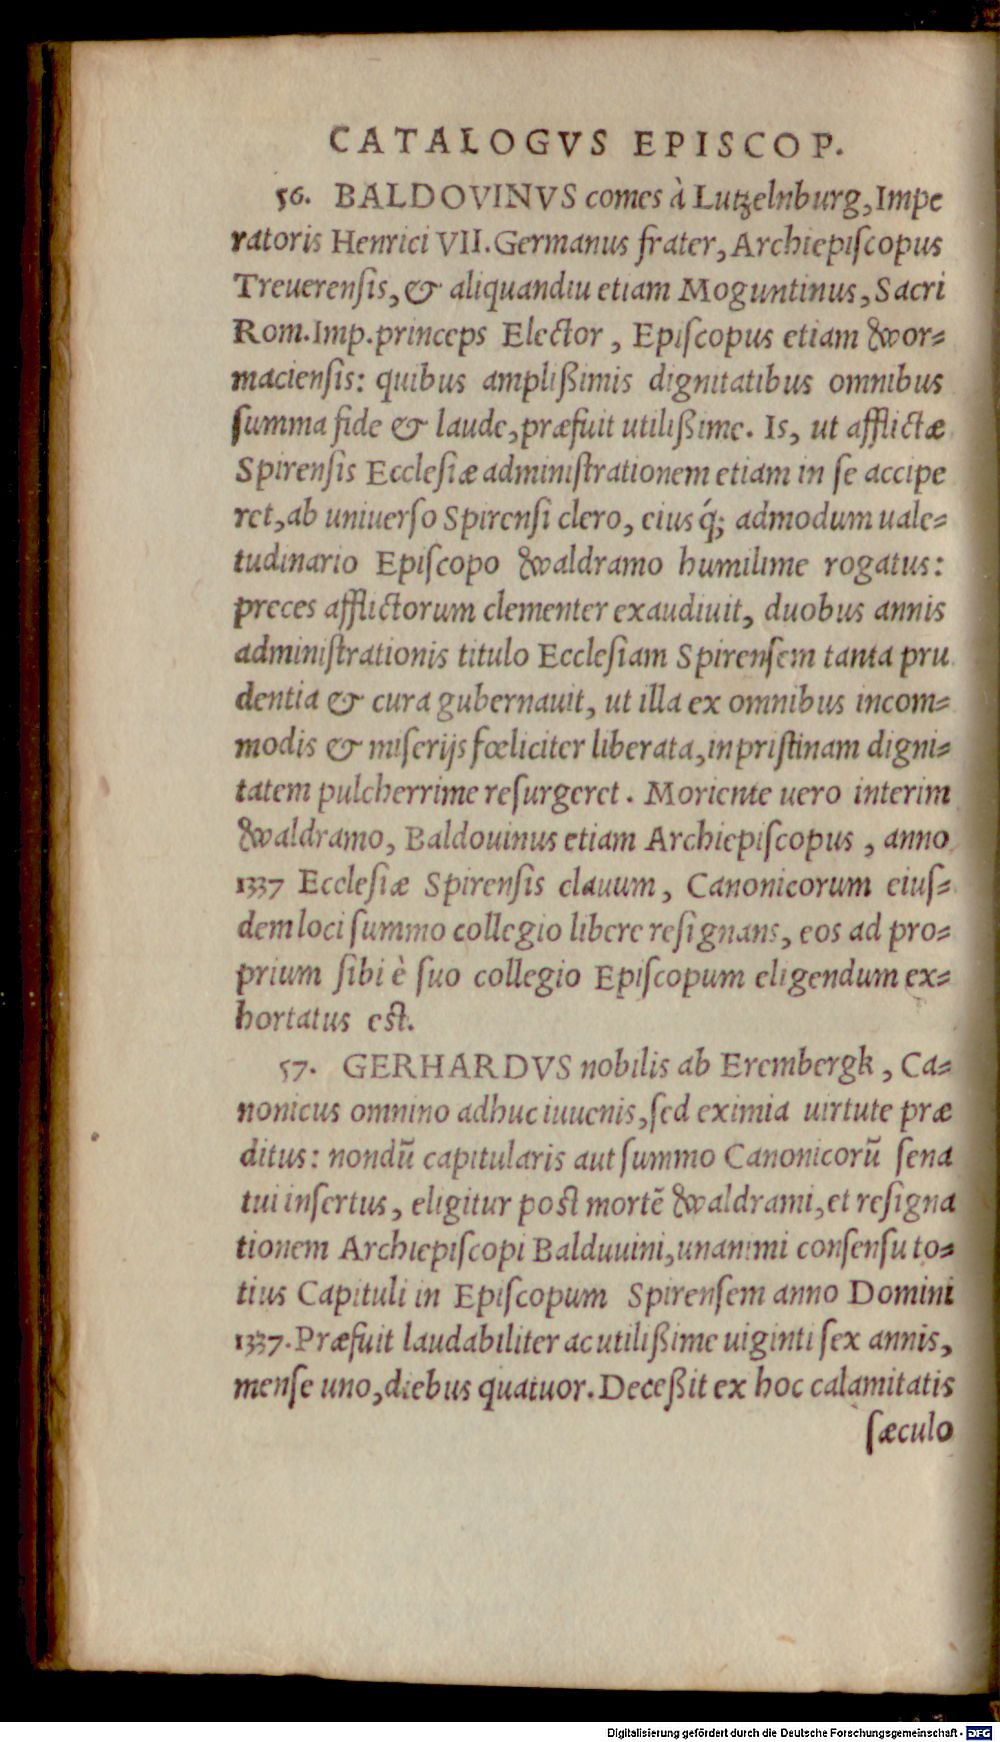 CATALOGVS EPISCOP.
56. BALDOVINVS comes à Lutzelnburg, Impe
ratoris Henrici VII. Germanus frater, Archiepiſcopus
Treuerenſis, & aliquandiu etiam Moguntinus, Sacri
Rom. Imp. princeps Elector, Epiſcopus etiam Wor-
macienſis: quibus ampliſſimis dignitatibus omnibus
ſumma fide & laude, præfuit utiliſſime. Is, ut afflictæ
Spirenſis Eccleſiæ adminiſtrationem etiam in ſe accipe
ret, ab uniuerſo Spirenſi clero, eiusq́; admodum uale-
tudinario Epiſcopo Waldramo humilime rogatus:
preces afflictorum clementer exaudiuit, duobus annis
adminiſtrationis titulo Eccleſiam Spirenſem tanta pru
dentia & cura gubernauit, ut illa ex omnibus incom-
modis & miſerijs fœliciter liberata, in priſtinam digni-
tatem pulcherrime reſurgeret. Moriente uero interim
Waldramo, Baldouinus etiam Archiepiſcopus, anno
1337 Eccleſiæ Spirenſis clauum, Canonicorum eiuſ-
dem loci ſummo collegio libere reſignans, eos ad pro-
prium ſibi è ſuo collegio Epiſcopum eligendum ex-
hortatus eſt.
57. GERHARDVS nobilis ab Erembergk, Ca-
nonicus omnino adhuc iuuenis, ſed eximia uirtute præ
ditus: nondũ capitularis aut ſummo Canonicorũ ſena
tui inſertus, eligitur poſt mortẽ Waldrami, et reſigna
tionem Archiepiſcopi Balduuini, unanimi conſenſu to-
tius Capituli in Epiſcopum Spirenſem anno Domini
1337. Præfuit laudabiliter ac utiliſſime uiginti ſex annis,
menſe uno, diebus quatuor. Deceſſit ex hoc calamitatis
ſæculo
Digitalisierung gefördert durch die Deutsche Forschungsgemeinschaft - DFG